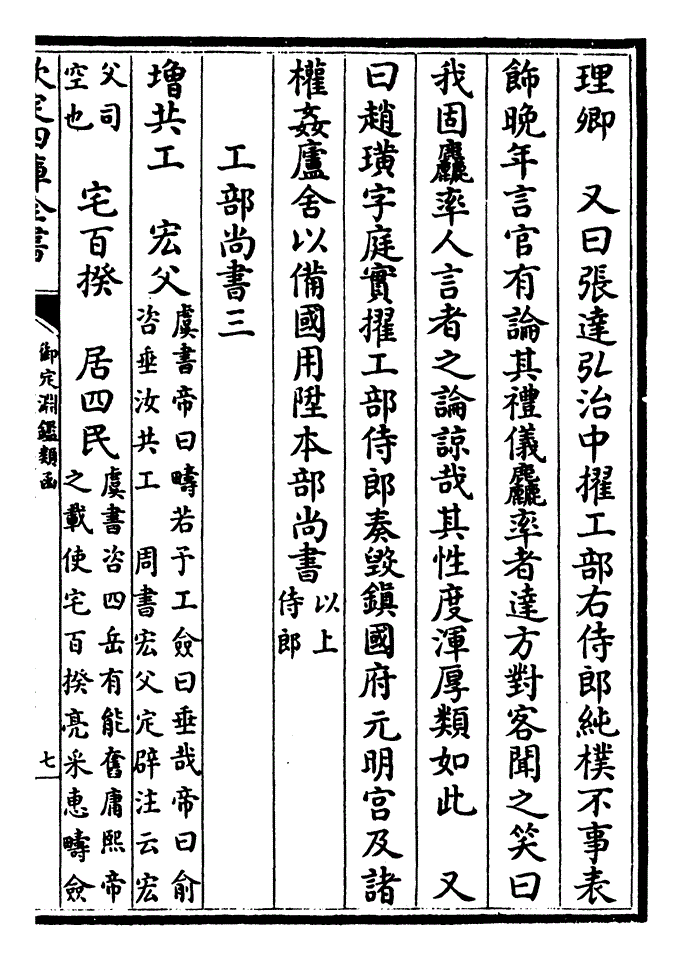 理卿　又曰張達弘治中擢工部右侍郎純樸不事表
飾晚年言官有論其禮儀麤率者達方對客聞之笑曰
我固麤率人言者之論諒哉其性度渾厚類如此　又
曰趙璜字庭實擢工部侍郎奏毀鎮國府元明宮及諸
權姦廬舍以備國用陞本部尚書以上
侍郎
工部尚書三
增共工　宏父虞書帝曰疇若予工僉曰垂哉帝曰俞
咨垂汝共工　周書宏父定辟注云宏
父司
空也　宅百揆　居四民虞書咨四岳有能奮庸熙帝
之載使宅百揆亮采惠疇僉
欽定四庫全書
御定淵鑑類函
七